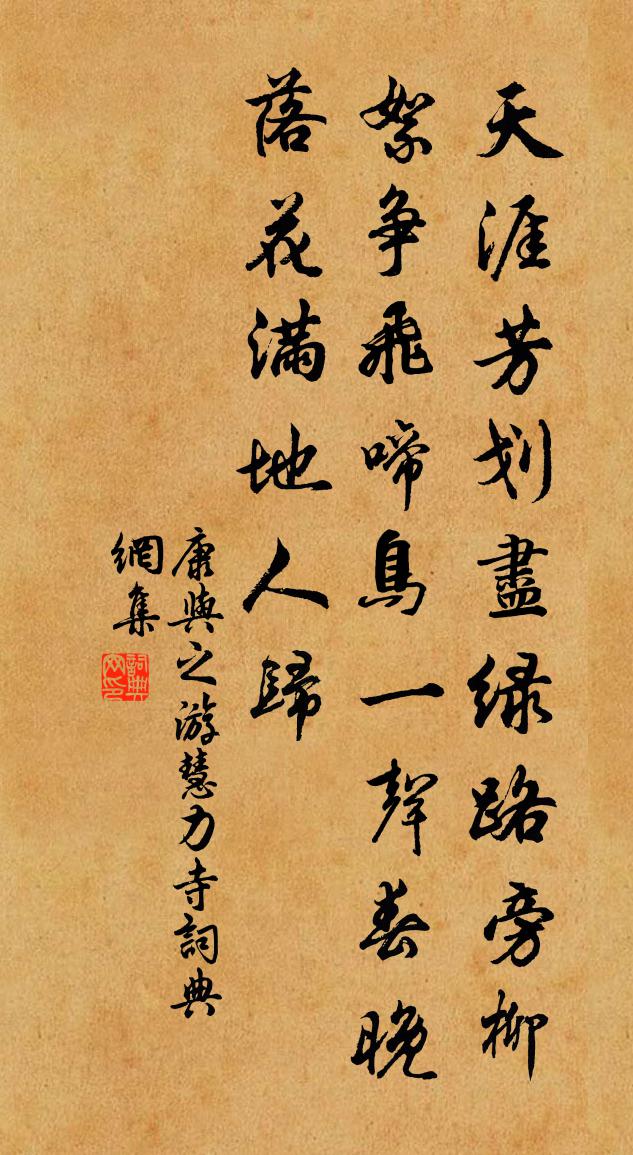 天涯芳划盡绿路旁柳
絮争飛啼鳥一聲春晚
落花滿地人歸
康與之游慧力寺詞典
網集
詞典
网印